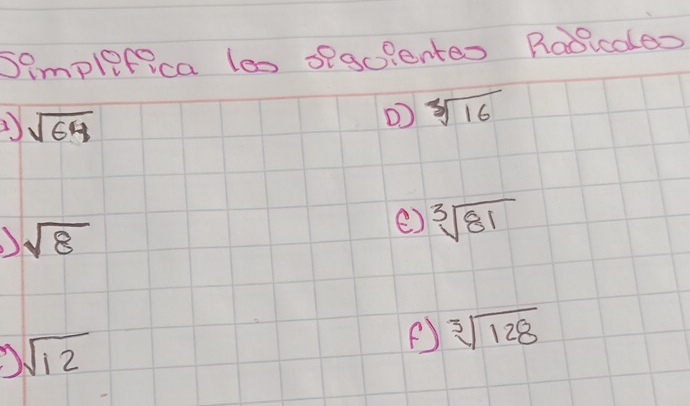 Simplifica los siguientes Radicales
a) √64
D) ³√16
b) √8
E) ³√81
c) √12
F) ³√128